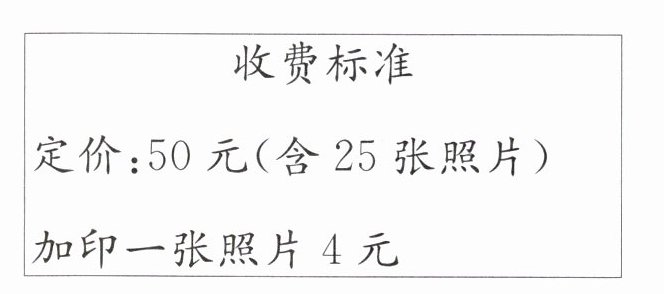 收费标准
定价:50 元(含 25 张照片)
加印一张照片 4 元